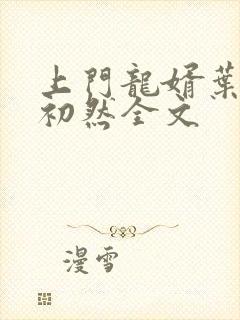 上門龍婿葉
初然全文
漫雪